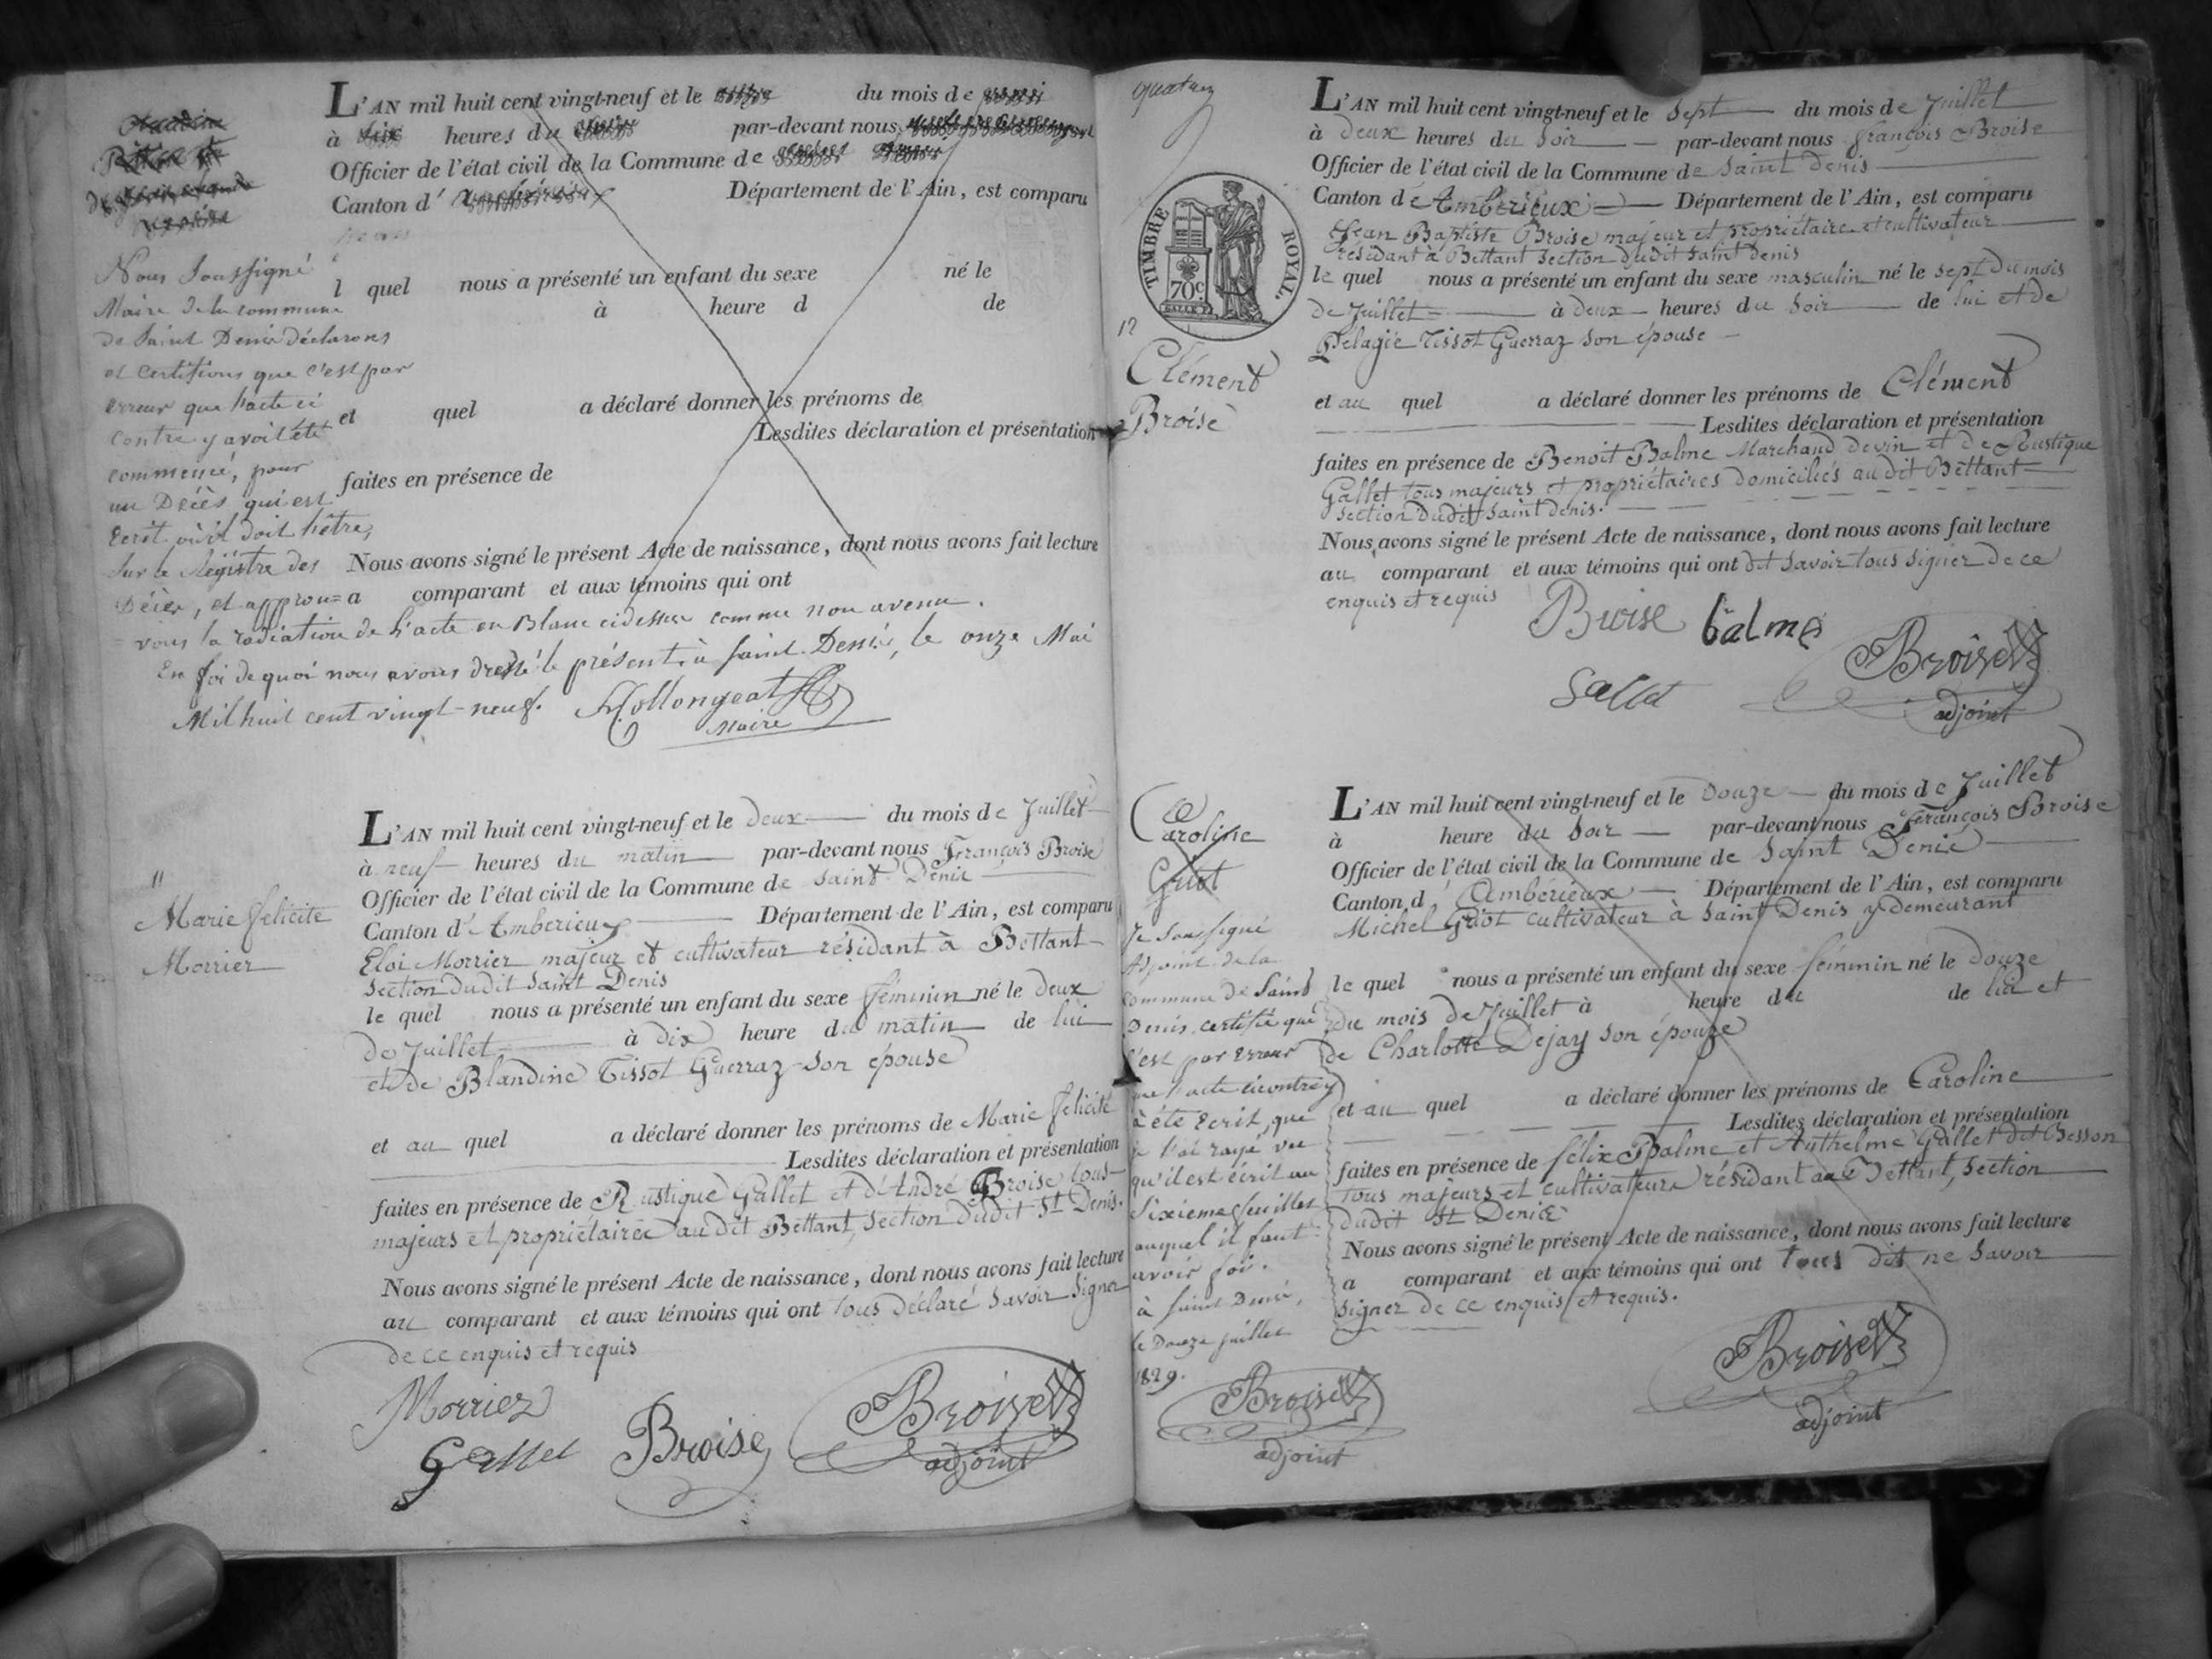 L'AN mil huit cent vingt-neuf et le du mois de
à heures du par-devant nous
Officier de l'état civil de la Commune de
Canton d' Département de l'Ain, est comparu
l quel nous a présenté un enfant du sexe né le
à heure d de
et quel a déclaré donner les prénoms de
Lesdites déclaration et présentation
faites en présence de
Nous avons signé le présent Acte de naissance, dont nous avons fait lecture
a comparant et aux témoins qui ont
Nous soussigné
Maire de la commune
de Saint Denis déclarons
et certifions que c'est par
erreur que l'acte ci
contre y avoit été
commencé, pour
un Décès qui est
Ecrit où il doit l'être,
sur le Régistre des
Décès, et approu=
vons la radiation de l'acte en Blanc cidessus comme non avenu.
En foi de quoi nous avons dressé le présent à Saint Denis, le onze Mai
Mil huit cent vingt-neuf. Collongeat
Maire
11
Marie félicité
Morrier
L'AN mil huit cent vingt-neuf et le deux du mois de Juillet
à neuf heures du matin par-devant nous François Broise
Officier de l'état civil de la Commune de Saint Denis
Canton d'Amberieux Département de l'Ain, est comparu
Eloi Morrier majeur et cultivateur résidant à Bettant
section dudit Saint Denis
le quel nous a présenté un enfant du sexe féminin né le deux
de Juillet à dix heure du matin de lui
et de Blandine Tissot Guerraz son épouse
et au quel a déclaré donner les prénoms de Marie félicité
Lesdites déclaration et présentation
faites en présence de Rustique Gallet et d'André Broise tous
majeurs et propriétaires au dit Bettant, section dudit St Denis.
Nous avons signé le présent Acte de naissance, dont nous avons fait lecture
au comparant et aux témoins qui ont tous déclaré savoir signer
de ce enquis et requis
Morrier
Gallet Broise Broise
adjoint
TIMBRE ROYAL.
70c
12
Clément
Broise
L'AN mil huit cent vingt-neuf et le sept du mois de Juillet
à deux heures du soir par-devant nous françois Broise
Officier de l'état civil de la Commune de Saint Denis
Canton d'Amberieux Département de l'Ain, est comparu
Jean Baptiste Broise majeur et propriétaire et cultivateur
résidant à Bettant section dudit Saint Denis
le quel nous a présenté un enfant du sexe masculin né le sept du mois
de Juillet à deux heures du soir de lui et de
Pelagie Tissot Guerraz son épouse
et au quel a déclaré donner les prénoms de Clément
Lesdites déclaration et présentation
faites en présence de Benoit Balme Marchand de vin et de Rustique
Gallet tous majeurs et propriétaires domiciliés au dit Bettant
section dudit Saint Denis.
Nous avons signé le présent Acte de naissance, dont nous avons fait lecture
au comparant et aux témoins qui ont dit savoir tous signer de ce
enquis et requis
Broise Balme
Gallet Broise
adjoint
Caroline
Griot
Je soussigné
Adjoint de la
commune de Saint
Denis, certifie que
c'est par Erreur
que l'acte cicontre
à été Ecrit, que
je l'ai rayé vu
qu'il est écrit au
Sixieme feuillet
auquel il faut
avoir foi.
à Saint Denis,
le Douze Juillet
1829.
Broise
adjoint
L'AN mil huit cent vingt-neuf et le Douze du mois de Juillet
à heure du soir par-devant nous François Broise
Officier de l'état civil de la Commune de Saint Denis
Canton d'Amberieux Département de l'Ain, est comparu
Michel Griot cultivateur à Saint Denis y demeurant
le quel nous a présenté un enfant du sexe féminin né le douze
du mois de Juillet à heure du de lui et
de Charlotte Dejay son épouze
et au quel a déclaré donner les prénoms de Caroline
Lesdites déclaration et présentation
faites en présence de félix Balme et Anthelme Gallet dit Besson
tous majeurs et cultivateurs résidant au Bettant, section
dudit St Denis
Nous avons signé le présent Acte de naissance, dont nous avons fait lecture
a comparant et aux témoins qui ont tous dit ne savoir
signer de ce enquis et requis.
Broise
adjoint